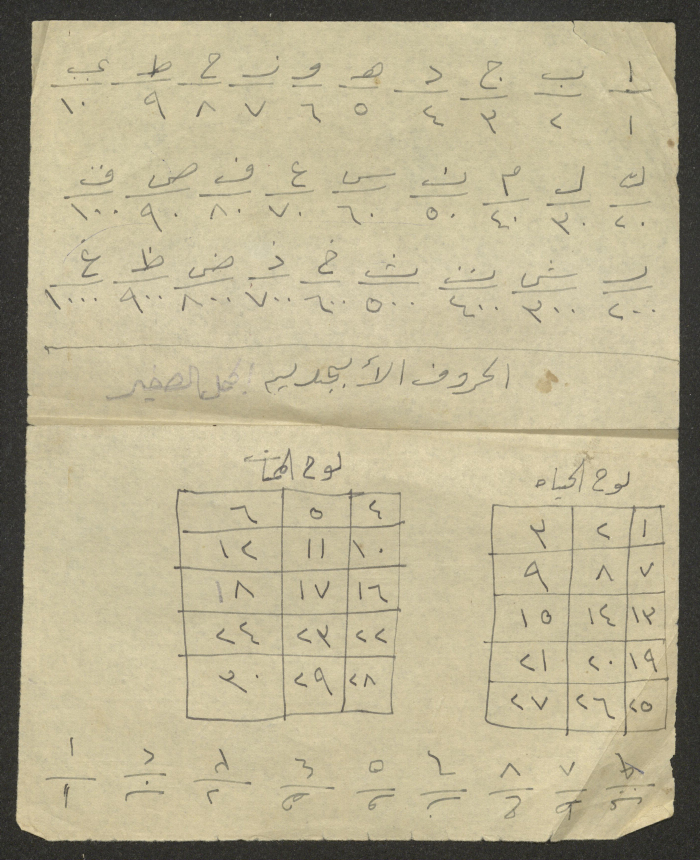 ا ب ج د ه و ز ح ط ي
١ ٢ ٣ ٤ ٥ ٦ ٧ ٨ ٩ ١٠
ك ل م ن س ع ف ص ق
٢٠ ٣٠ ٤٠ ٥٠ ٦٠ ٧٠ ٨٠ ٩٠ ١٠٠
ر ش ت ث خ ذ ض ظ غ
٢٠٠ ٣٠٠ ٤٠٠ ٥٠٠ ٦٠٠ ٧٠٠ ٨٠٠ ٩٠٠ ١٠٠٠
الحروف الأبجديه الصغير
لوح الحياه
١ ٢ ٣
٧ ٨ ٩
١٣ ١٤ ١٥
١٩ ٢٠ ٢١
٢٥ ٢٦ ٢٧
لوح الممات
٤ ٥ ٦
١٠ ١١ ١٢
١٦ ١٧ ١٨
٢٢ ٢٣ ٢٤
٢٨ ٢٩ ٣٠
٧ ٨ ٦ ٥ ٤